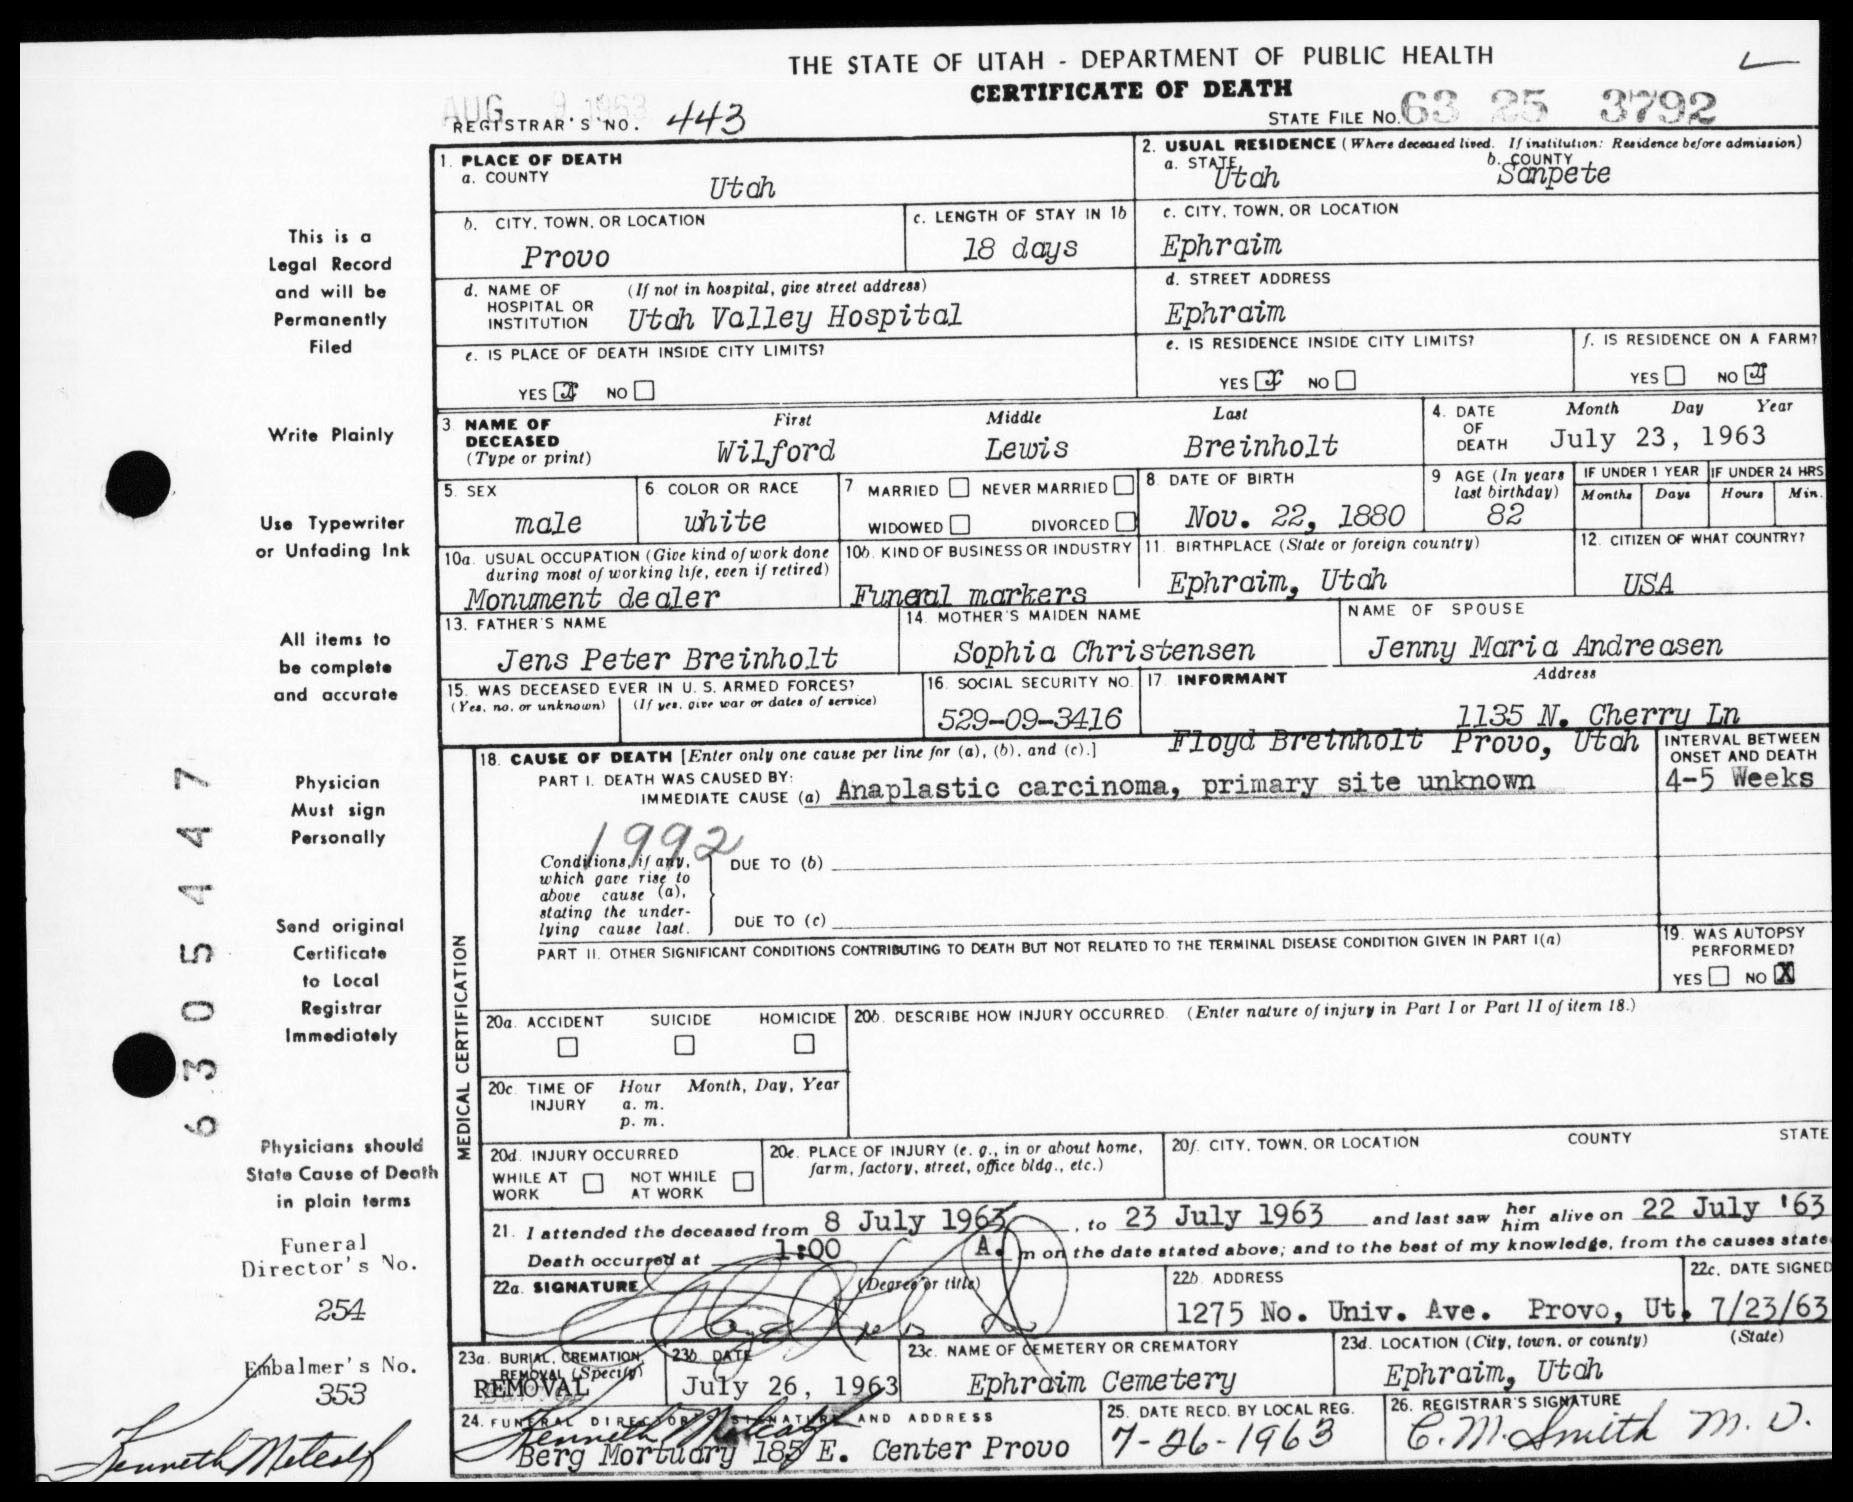 THE STATE OF UTAH - DEPARTMENT OF PUBLIC HEALTH
CERTIFICATE OF DEATH
AUG 9 1963
REGISTRAR'S NO. 443
STATE FILE NO. 63 25 3792
1. PLACE OF DEATH
a. COUNTY
Utah
2. USUAL RESIDENCE (Where deceased lived. If institution: Residence before admission)
a. STATE Utah b. COUNTY Sanpete
b. CITY, TOWN, OR LOCATION
Provo
c. LENGTH OF STAY IN 1b
18 days
c. CITY, TOWN, OR LOCATION
Ephraim
d. NAME OF HOSPITAL OR INSTITUTION (If not in hospital, give street address)
Utah Valley Hospital
d. STREET ADDRESS
Ephraim
e. IS PLACE OF DEATH INSIDE CITY LIMITS?
YES X NO
e. IS RESIDENCE INSIDE CITY LIMITS?
YES X NO
f. IS RESIDENCE ON A FARM?
YES NO X
3. NAME OF DECEASED (Type or print)
First Middle Last
Wilford Lewis Breinholt
4. DATE OF DEATH
Month Day Year
July 23, 1963
5. SEX
male
6. COLOR OR RACE
white
7 MARRIED NEVER MARRIED
WIDOWED DIVORCED
8. DATE OF BIRTH
Nov. 22, 1880
9 AGE (In years last birthday)
82
IF UNDER 1 YEAR
Months Days
IF UNDER 24 HRS
Hours Min.
10a. USUAL OCCUPATION (Give kind of work done during most of working life, even if retired)
Monument dealer
10b. KIND OF BUSINESS OR INDUSTRY
Funeral markers
11. BIRTHPLACE (State or foreign country)
Ephraim, Utah
12. CITIZEN OF WHAT COUNTRY?
USA
13. FATHER'S NAME
Jens Peter Breinholt
14. MOTHER'S MAIDEN NAME
Sophia Christensen
NAME OF SPOUSE
Jenny Maria Andreasen
15. WAS DECEASED EVER IN U. S. ARMED FORCES?
(Yes, no, or unknown) (If yes, give war or dates of service)
16. SOCIAL SECURITY NO.
529-09-3416
17. INFORMANT Address
1135 N. Cherry Ln
Floyd Breinholt Provo, Utah
MEDICAL CERTIFICATION
18. CAUSE OF DEATH [Enter only one cause per line for (a), (b), and (c).]
INTERVAL BETWEEN ONSET AND DEATH
PART I. DEATH WAS CAUSED BY:
IMMEDIATE CAUSE (a) Anaplastic carcinoma, primary site unknown
4-5 Weeks
1992
Conditions, if any, which gave rise to above cause (a), stating the underlying cause last.
DUE TO (b)
DUE TO (c)
PART II. OTHER SIGNIFICANT CONDITIONS CONTRIBUTING TO DEATH BUT NOT RELATED TO THE TERMINAL DISEASE CONDITION GIVEN IN PART I(a)
19. WAS AUTOPSY PERFORMED?
YES NO X
20a. ACCIDENT SUICIDE HOMICIDE
20b. DESCRIBE HOW INJURY OCCURRED. (Enter nature of injury in Part I or Part II of item 18.)
20c. TIME OF INJURY Hour Month, Day, Year
a. m.
p. m.
20d. INJURY OCCURRED
WHILE AT WORK NOT WHILE AT WORK
20e. PLACE OF INJURY (e. g., in or about home, farm, factory, street, office bldg., etc.)
20f. CITY, TOWN, OR LOCATION COUNTY STATE
21. I attended the deceased from 8 July 1963, to 23 July 1963 and last saw her him alive on 22 July '63
Death occurred at 1:00 A. m on the date stated above; and to the best of my knowledge, from the causes state
22a. SIGNATURE (Degree or title)
22b. ADDRESS
1275 No. Univ. Ave. Provo, Ut.
22c. DATE SIGNED
7/23/63
23a. BURIAL, CREMATION, REMOVAL (Specify)
REMOVAL
23b. DATE
July 26, 1963
23c. NAME OF CEMETERY OR CREMATORY
Ephraim Cemetery
23d. LOCATION (City, town, or county) (State)
Ephraim, Utah
24. FUNERAL DIRECTOR'S SIGNATURE AND ADDRESS
Kenneth Metcalf
Berg Mortuary 185 E. Center Provo
25. DATE RECD. BY LOCAL REG.
7-26-1963
26. REGISTRAR'S SIGNATURE
C. M. Smith M. D.
This is a
Legal Record
and will be
Permanently
Filed
Write Plainly
Use Typewriter
or Unfading Ink
All items to
be complete
and accurate
Physician
Must sign
Personally
Send original
Certificate
to Local
Registrar
Immediately
Physicians should
State Cause of Death
in plain terms
Funeral
Director's No.
254
Embalmer's No.
353
Kenneth Metcalf
6305447